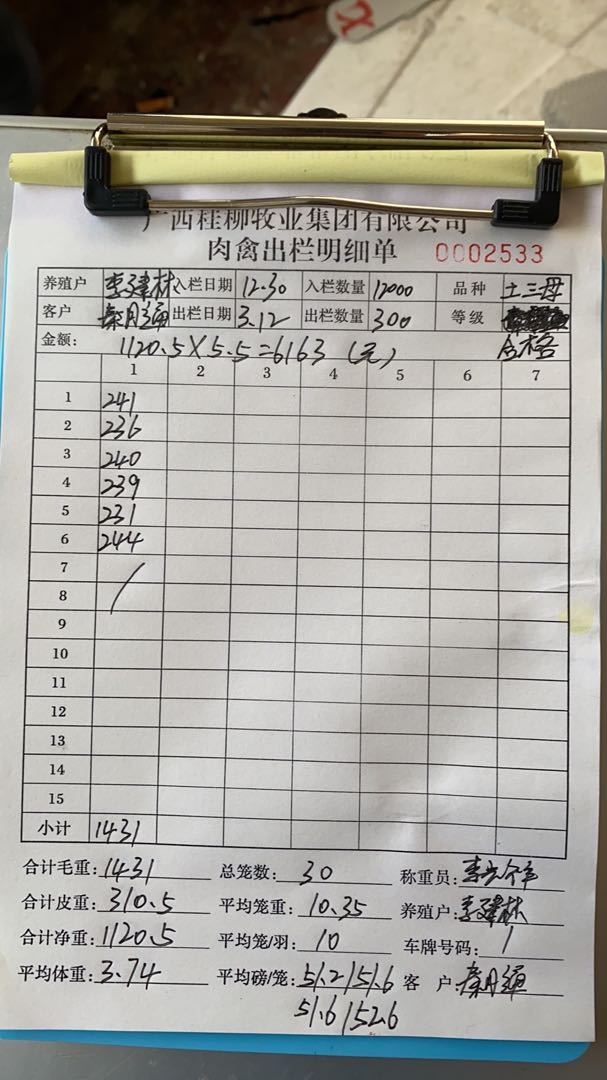 广西桂柳牧业集团有限公司
肉禽出栏明细单 0002533
养殖户 李建林 入栏日期 12.30 入栏数量 12000 品种 土三母
客户 秦月 出栏日期 3.12 出栏数量 300 等级 合格
金额: 1120.5×5.5=6163(元)
1 2 3 4 5 6 7
1 241
2 236
3 240
4 239
5 231
6 244
7
8
9
10
11
12
13
14
15
小计 1431
合计毛重: 1431 总笼数: 30 称重员: 李
合计皮重: 310.5 平均笼重: 10.35 养殖户: 李建林
合计净重: 1120.5 平均笼/羽: 10 车牌号码: /
平均体重: 3.74 平均磅/笼: 51.2/51.6 客户: 秦月
51.6/52.6